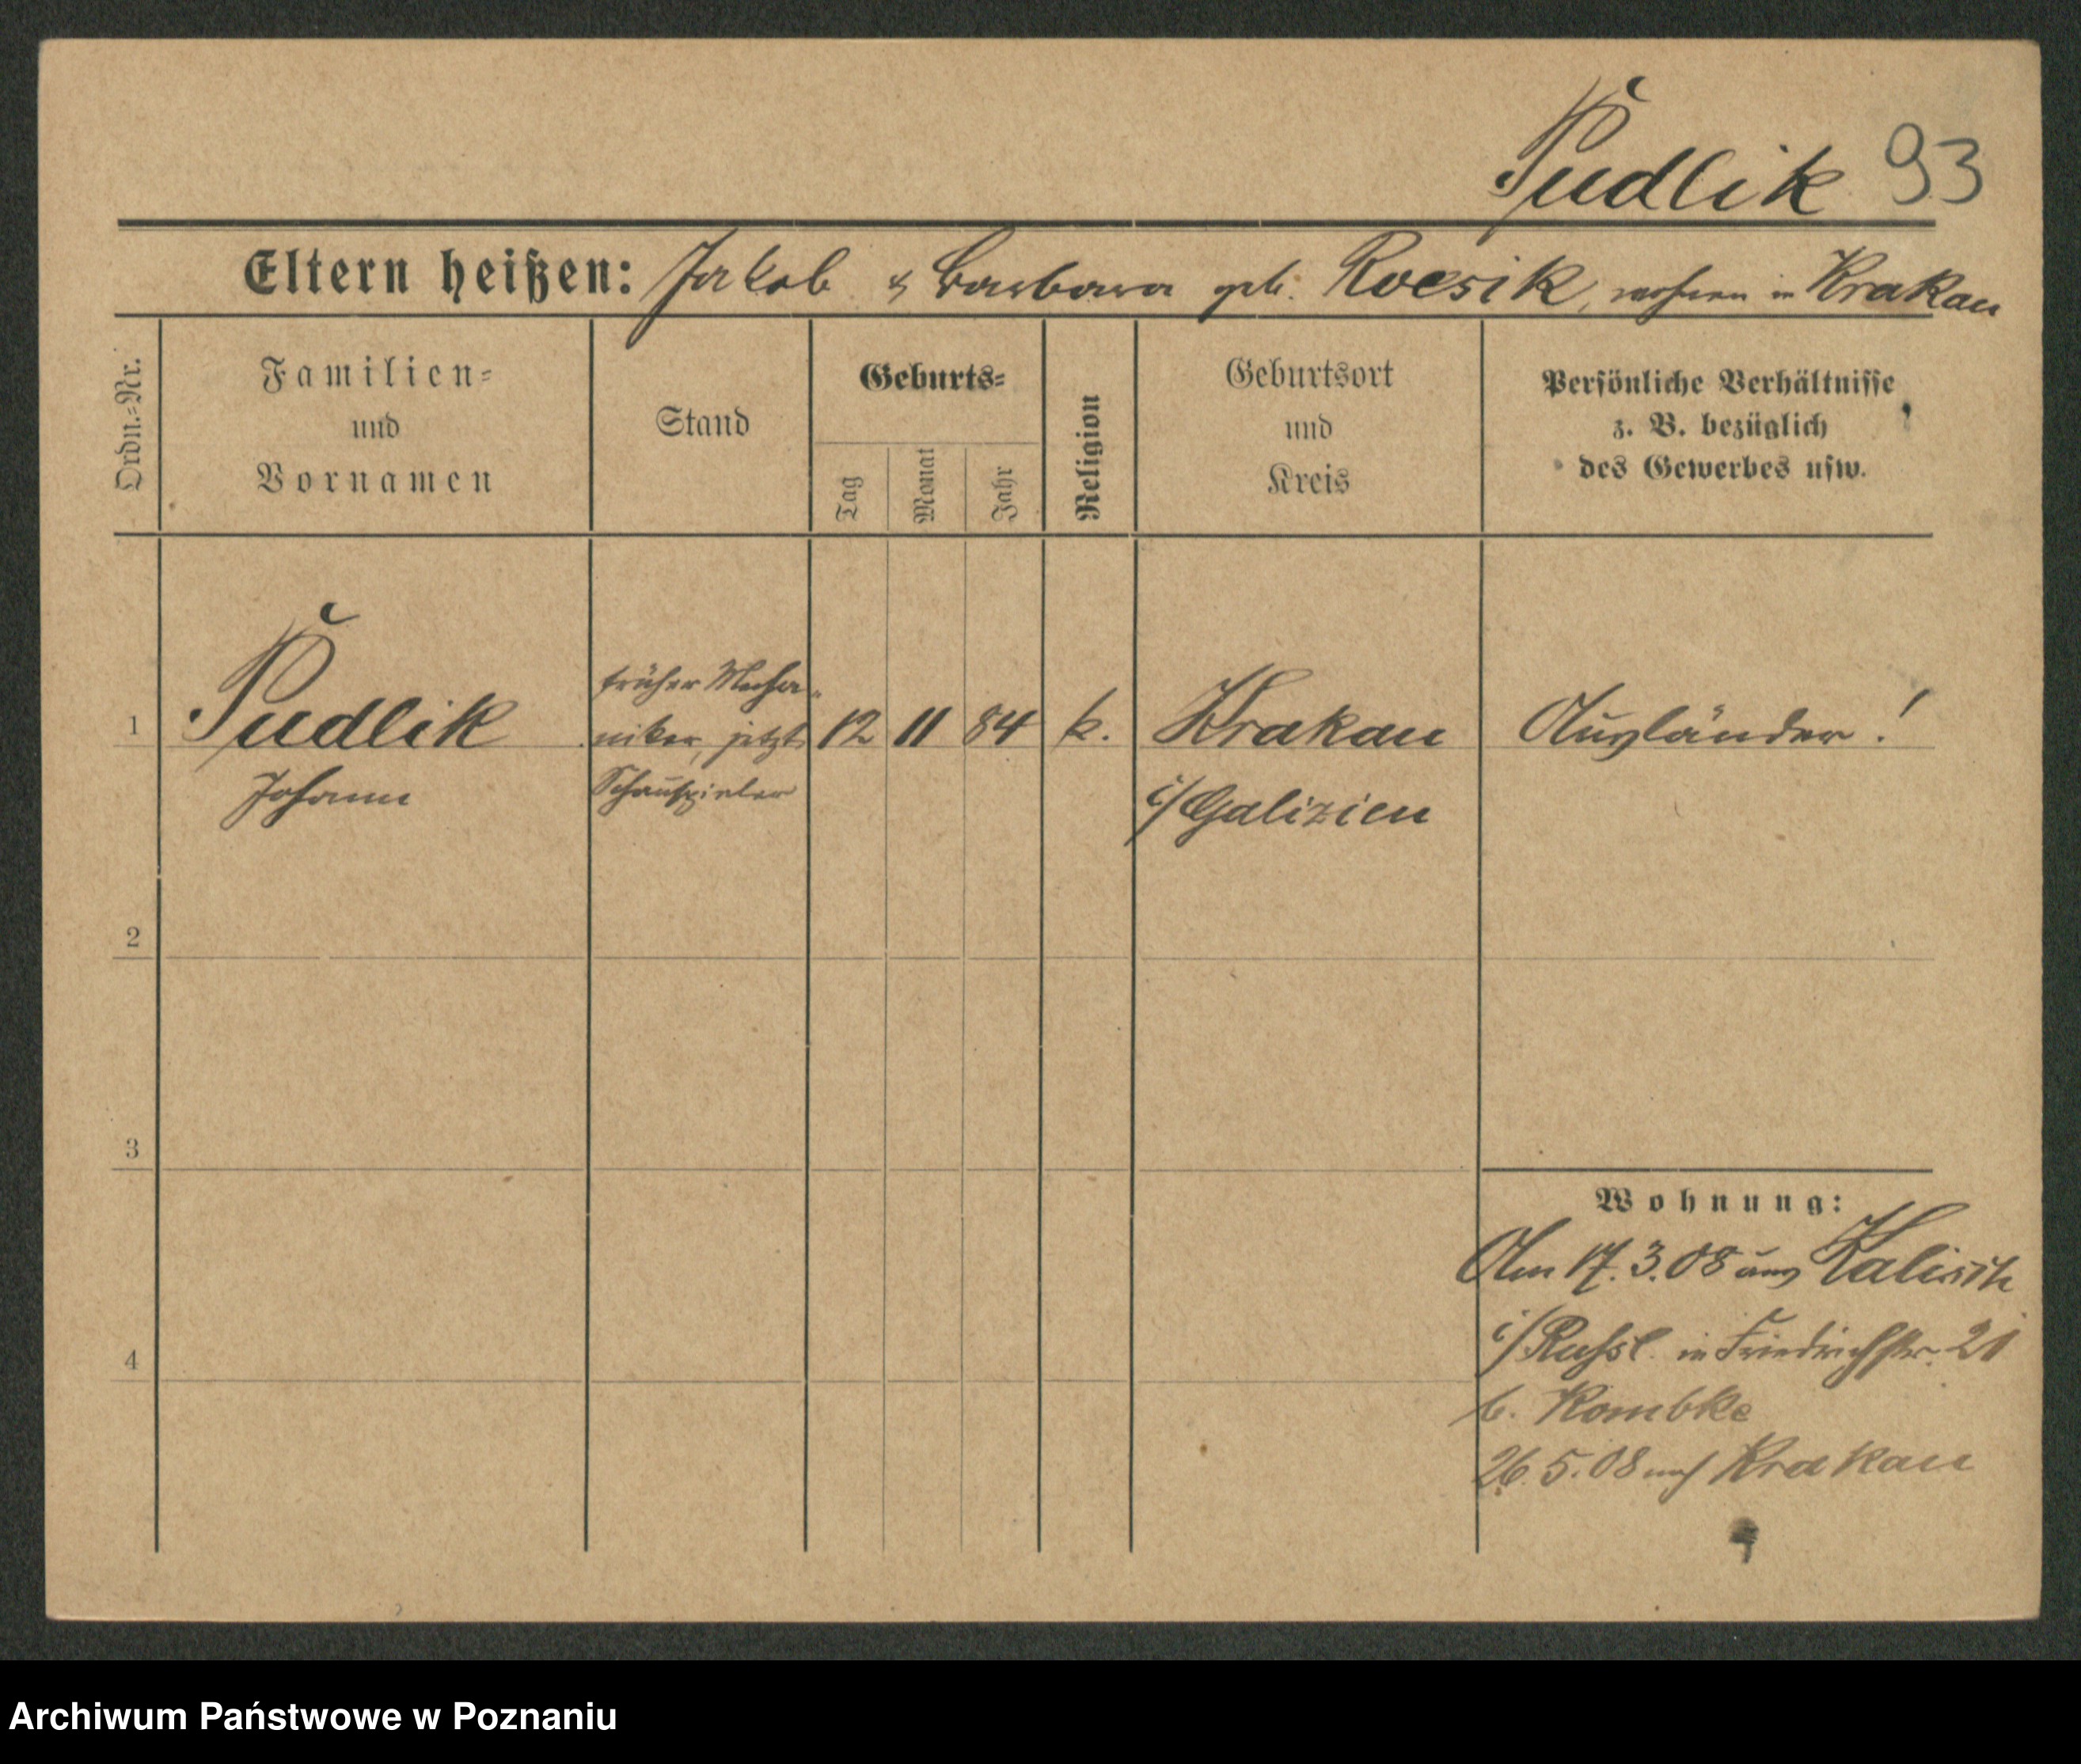 Pudlik 93
Eltern heißen: Jakob & Barbara geb. Roesik, wohnen in Krakau
Ordn.=Nr.
Familien=
und
Vornamen
Stand
Geburts=
Tag
Monat
Jahr
Religion
Geburtsort
und
Kreis
Persönliche Verhältnisse
z. B. bezüglich
des Gewerbes usw.
1 Pudlik früher Mecha-niker, jetzt 12 11 84 k. Krakau Ausländer!
Johann Schauspieler i/Galizien
2
3
4
Wohnung:
Am 17.3.08 aus Kalisch
i/Russl. in Friedrichstr. 21
b. Rombke
26.5.08 nach Krakau
Archiwum Państwowe w Poznaniu